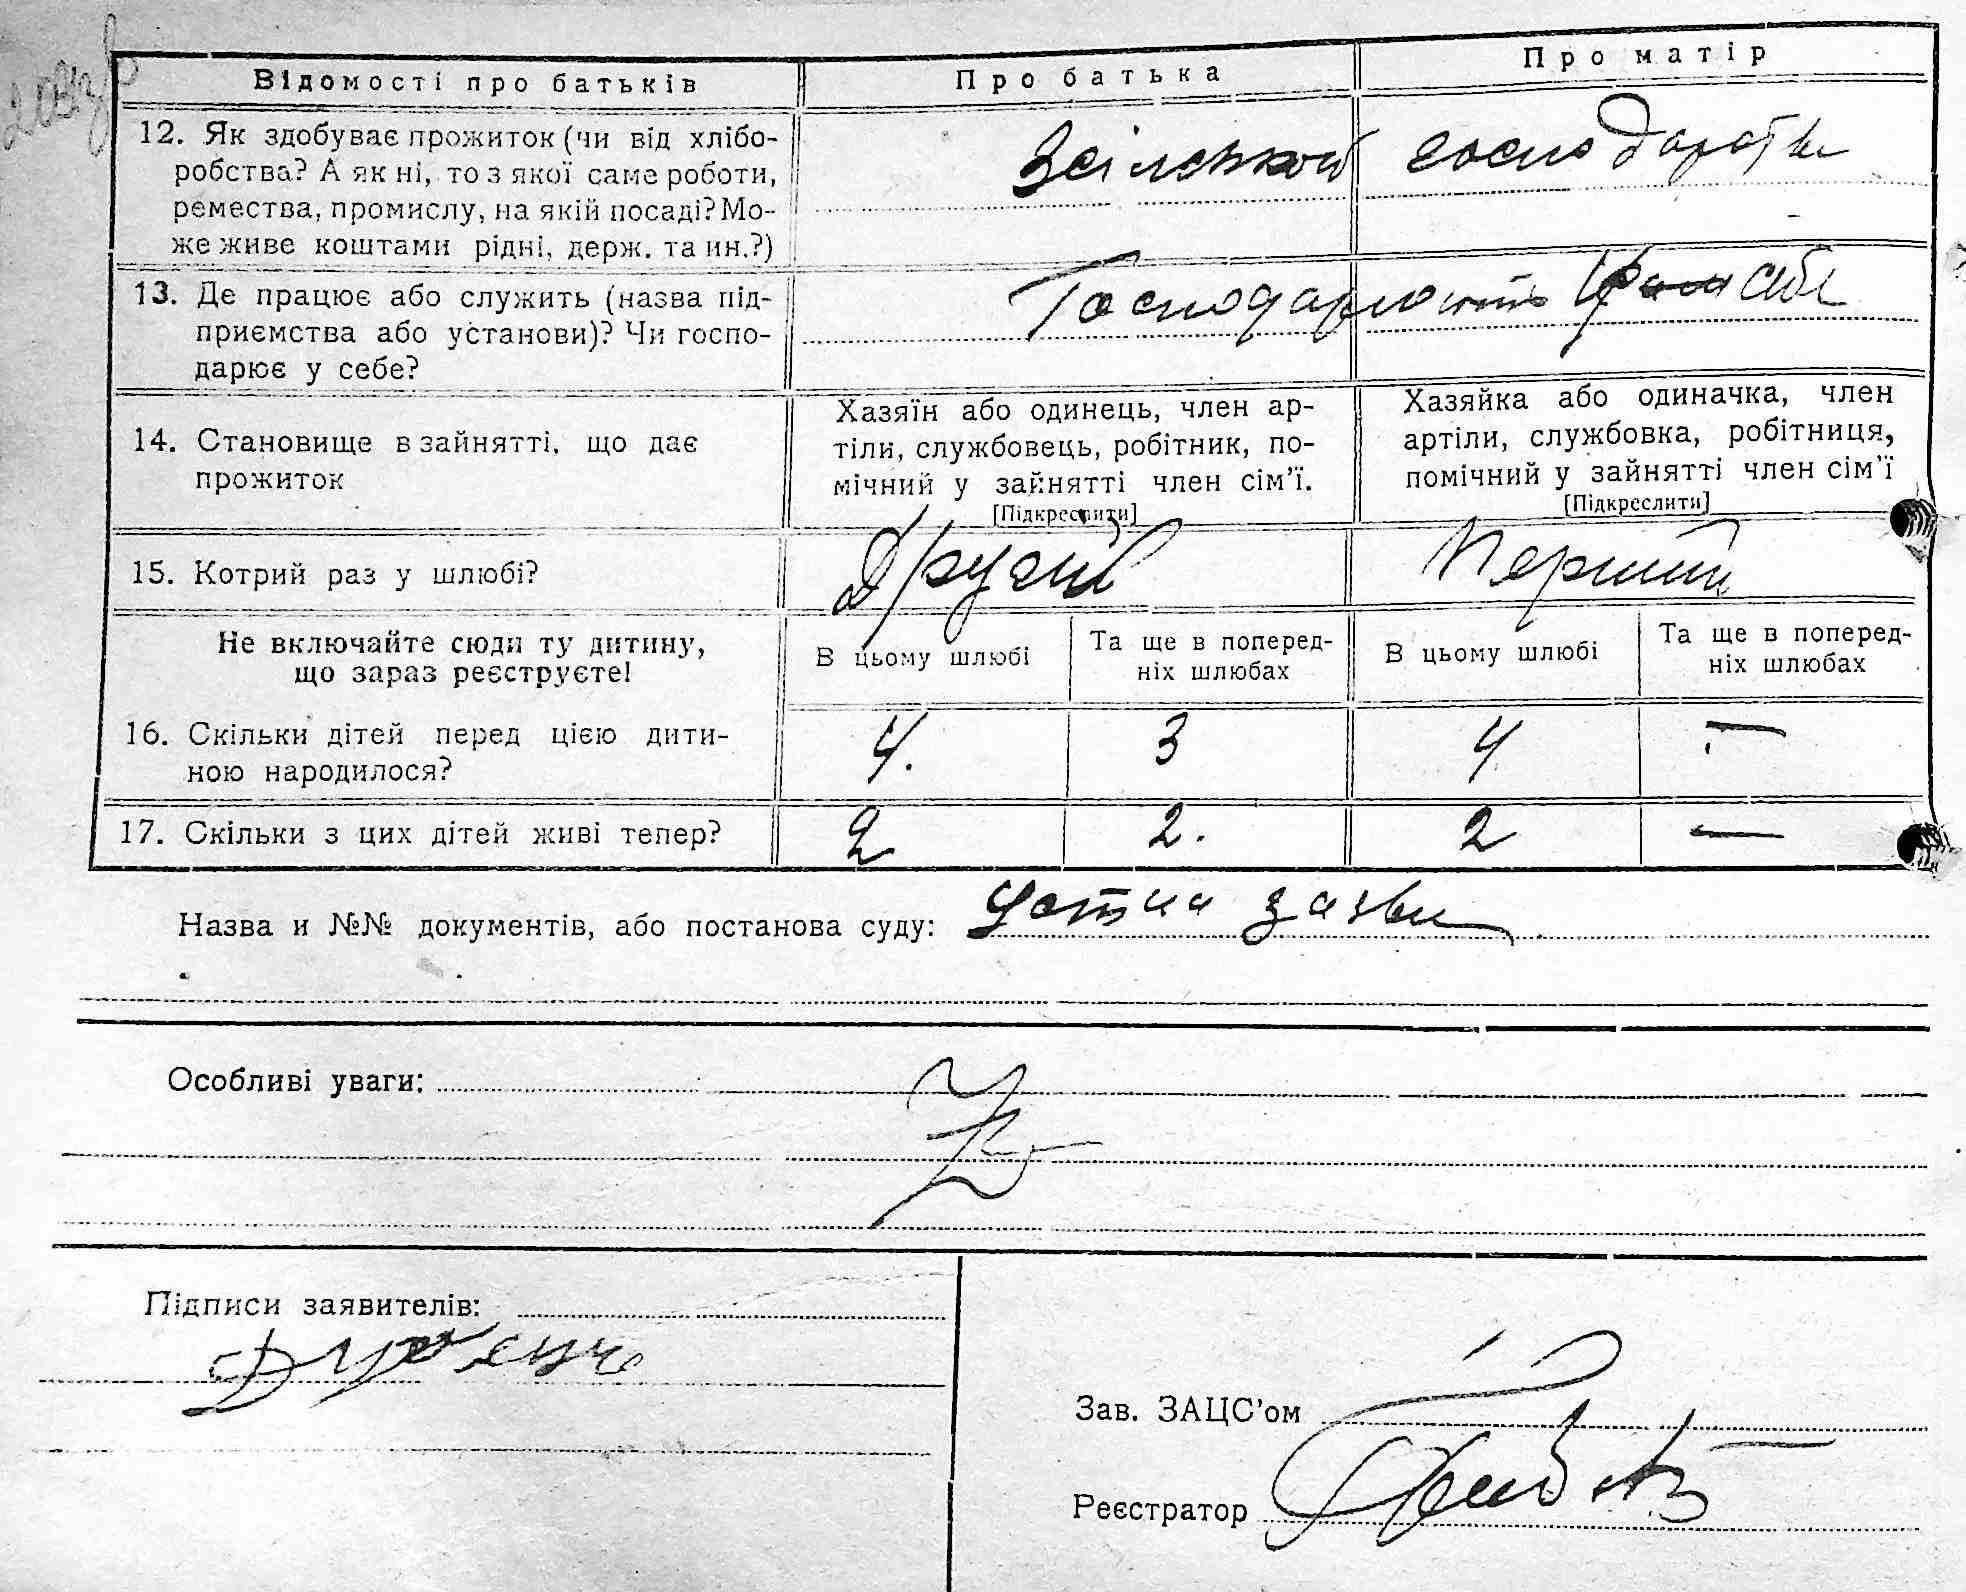 Відомості про батьків Про батька Про матір
12. Як здобуває прожиток (чи від хлібо-
робства? А як ні, то з якої саме роботи,
ремества, промислу, на якій посаді? Мо-
же живе коштами рідні, держ. та ин.?)
господарства
13. Де працює або служить (назва під-
приємства або установи)? Чи госпо-
дарює у себе?
Господарюють себе
14. Становище в зайнятті, що дає
прожиток
Хазяїн або одинець, член ар-
тіли, службовець, робітник, по-
мічний у зайнятті член сім’ї.
[Підкреслити]
Хазяйка або одиначка, член
артіли, службовка, робітниця,
помічний у зайнятті член сім’ї
[Підкреслити]
15. Котрий раз у шлюбі? Другий Перший
Не включайте сюди ту дитину,
що зараз реєструєте!
В цьому шлюбі
Та ще в поперед-
ніх шлюбах
В цьому шлюбі
Та ще в поперед-
ніх шлюбах
16. Скільки дітей перед цією дити-
ною народилося?
4. 3 4 —
17. Скільки з цих дітей живі тепер? 2 2. 2 —
Назва и №№ документів, або постанова суду: Устна заява
Особливі уваги:
Підписи заявителів:
Зав. ЗАЦС’ом
Реєстратор